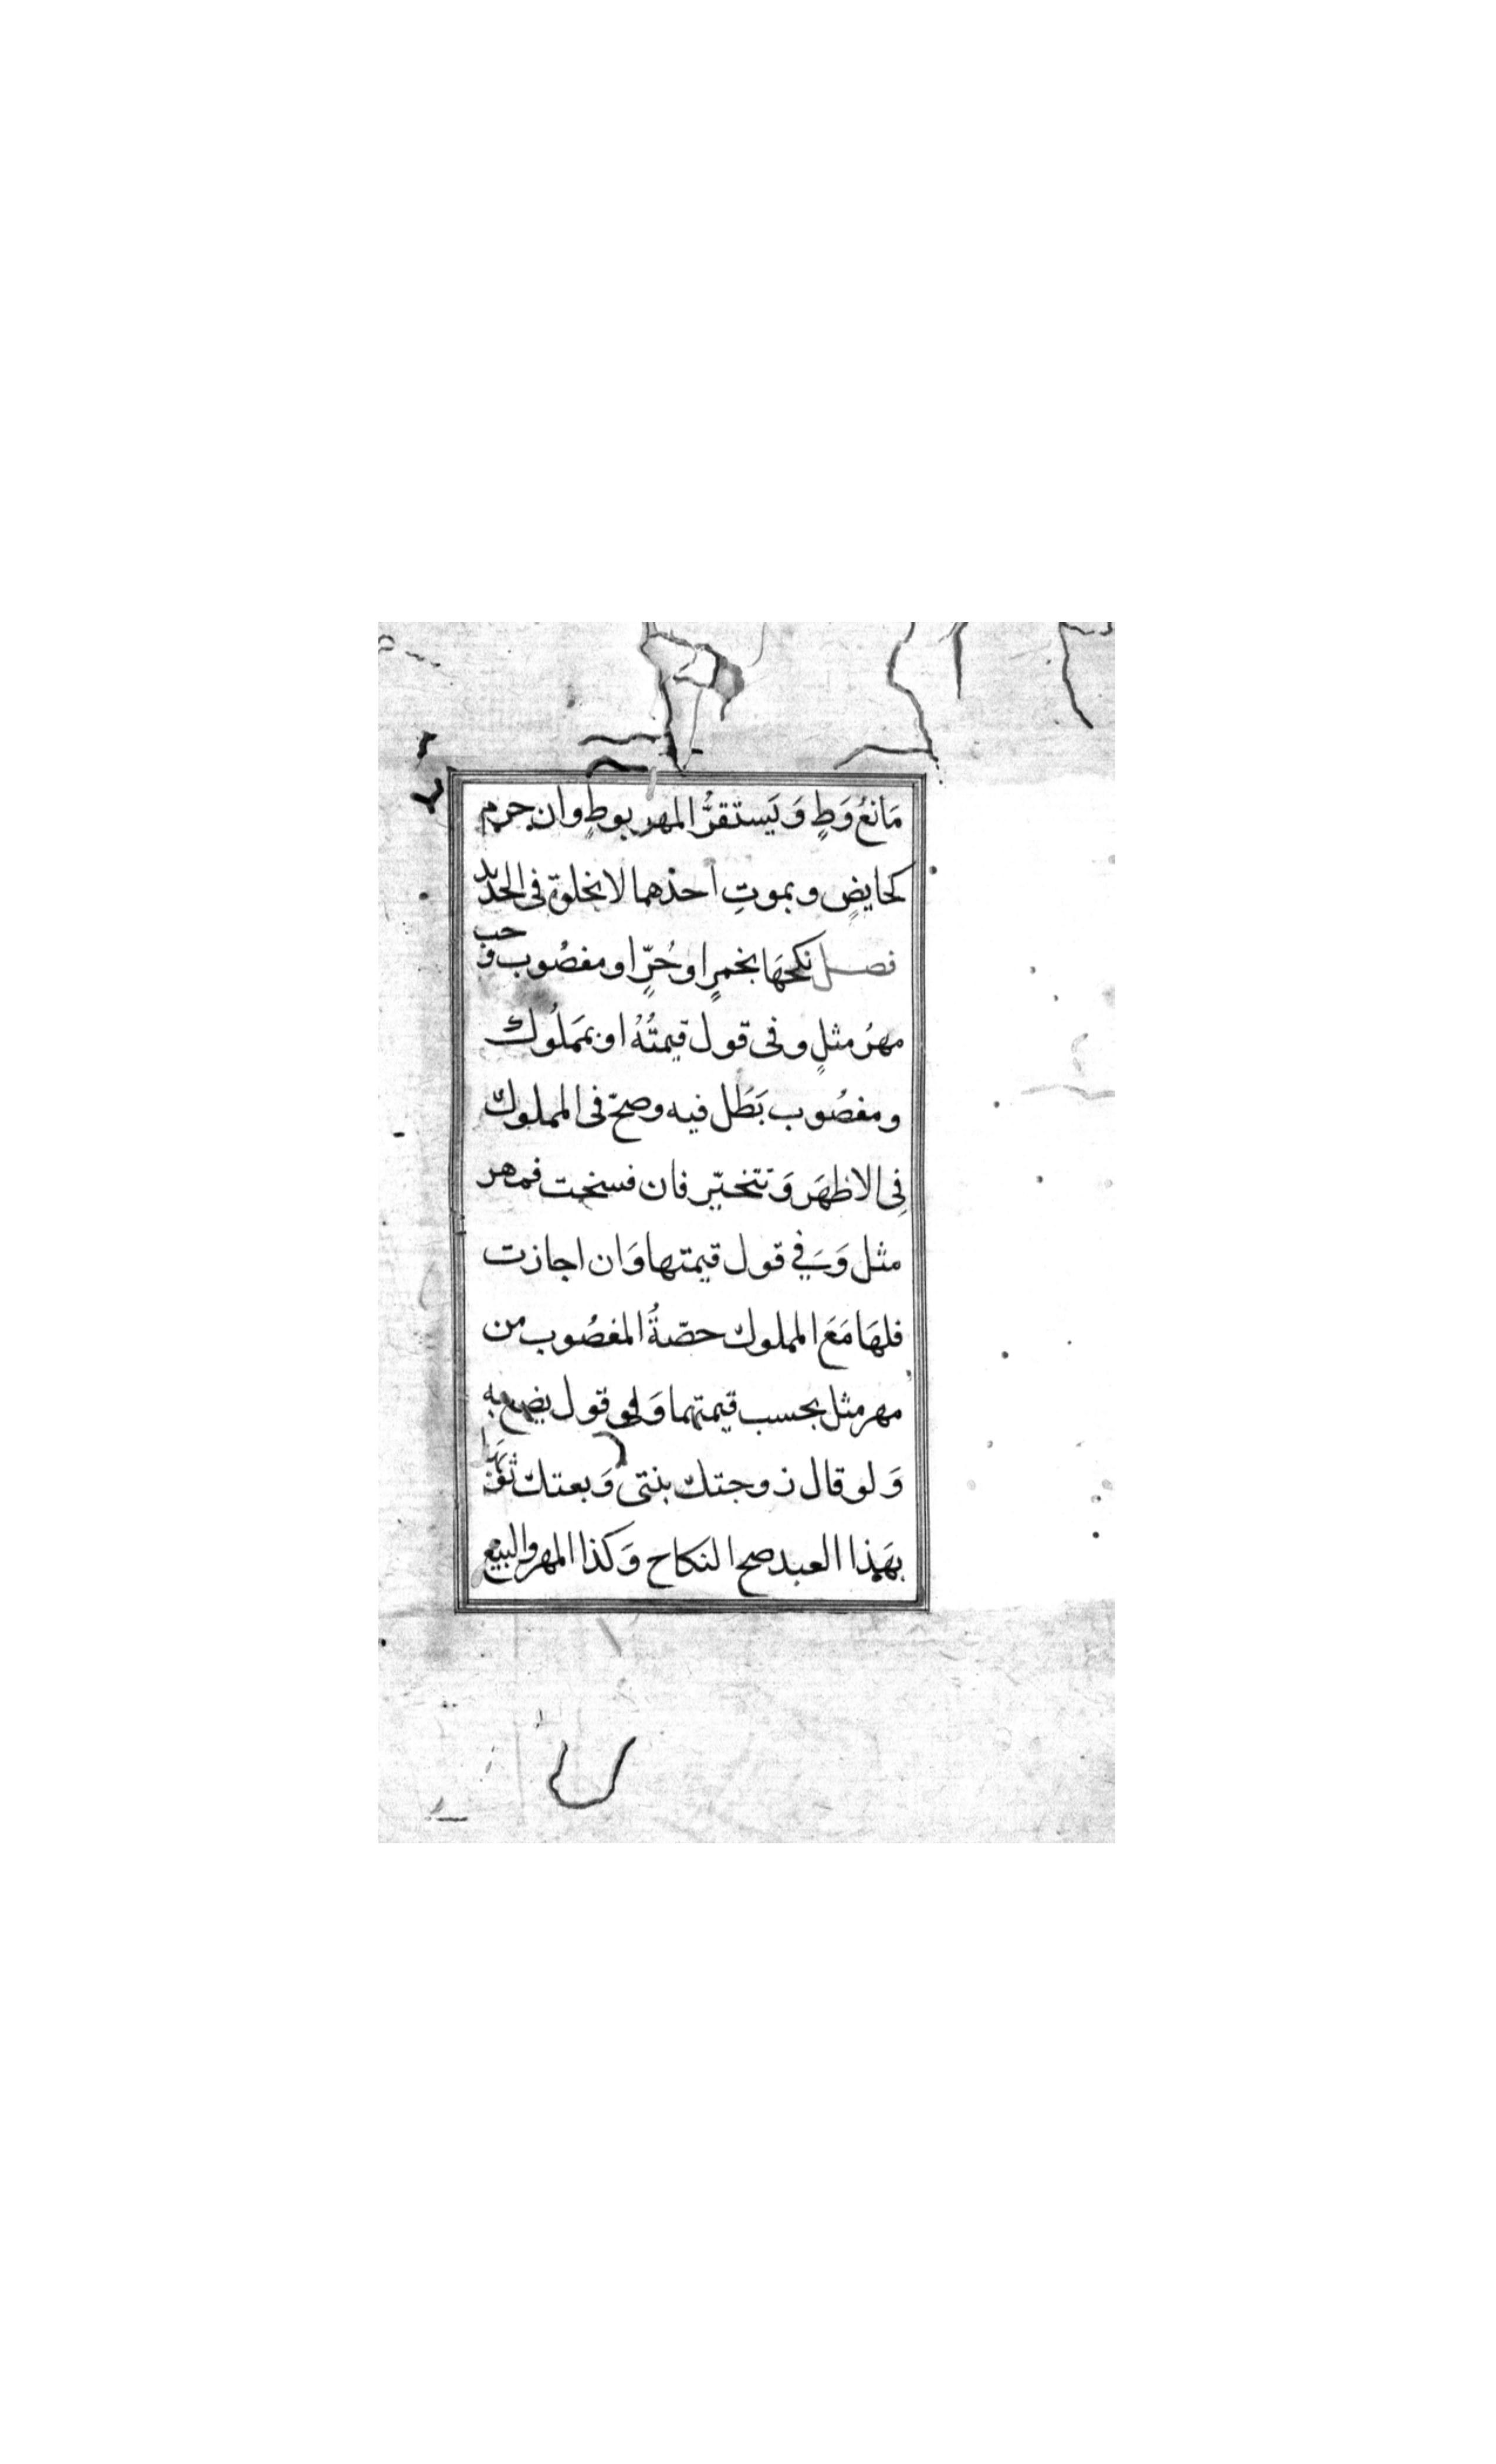 مَانعُ وَطٍ وَيَستقرُّ المهر بوطٍ وان حرم
كحايضٍ وبموتِ احدهما لا بخلوة فى الجديد
فصل نكحهَا بخمرٍ او حُرٍّ او مغصُوب وجب
مهرُ مثلٍ وفى قول قيمتُهُ او بمَملُوك
ومغصُوب بَطَل فيه وصحّ فى المملوك
فِى الاظهَر وَتتخيّر فان فسخت فمهر
مثل وَفي قول قيمتها وَان اجازت
فلهَا مَعَ المملوك حصّةُ المغصُوب من
مهر مثل بحسب قيمتهما وَفى قول يضع به
وَلو قال زوجتك بنتى وَبعتك ثوبَهَا
بهَذا العبد صح النكاح وَكذا المهر والبيع